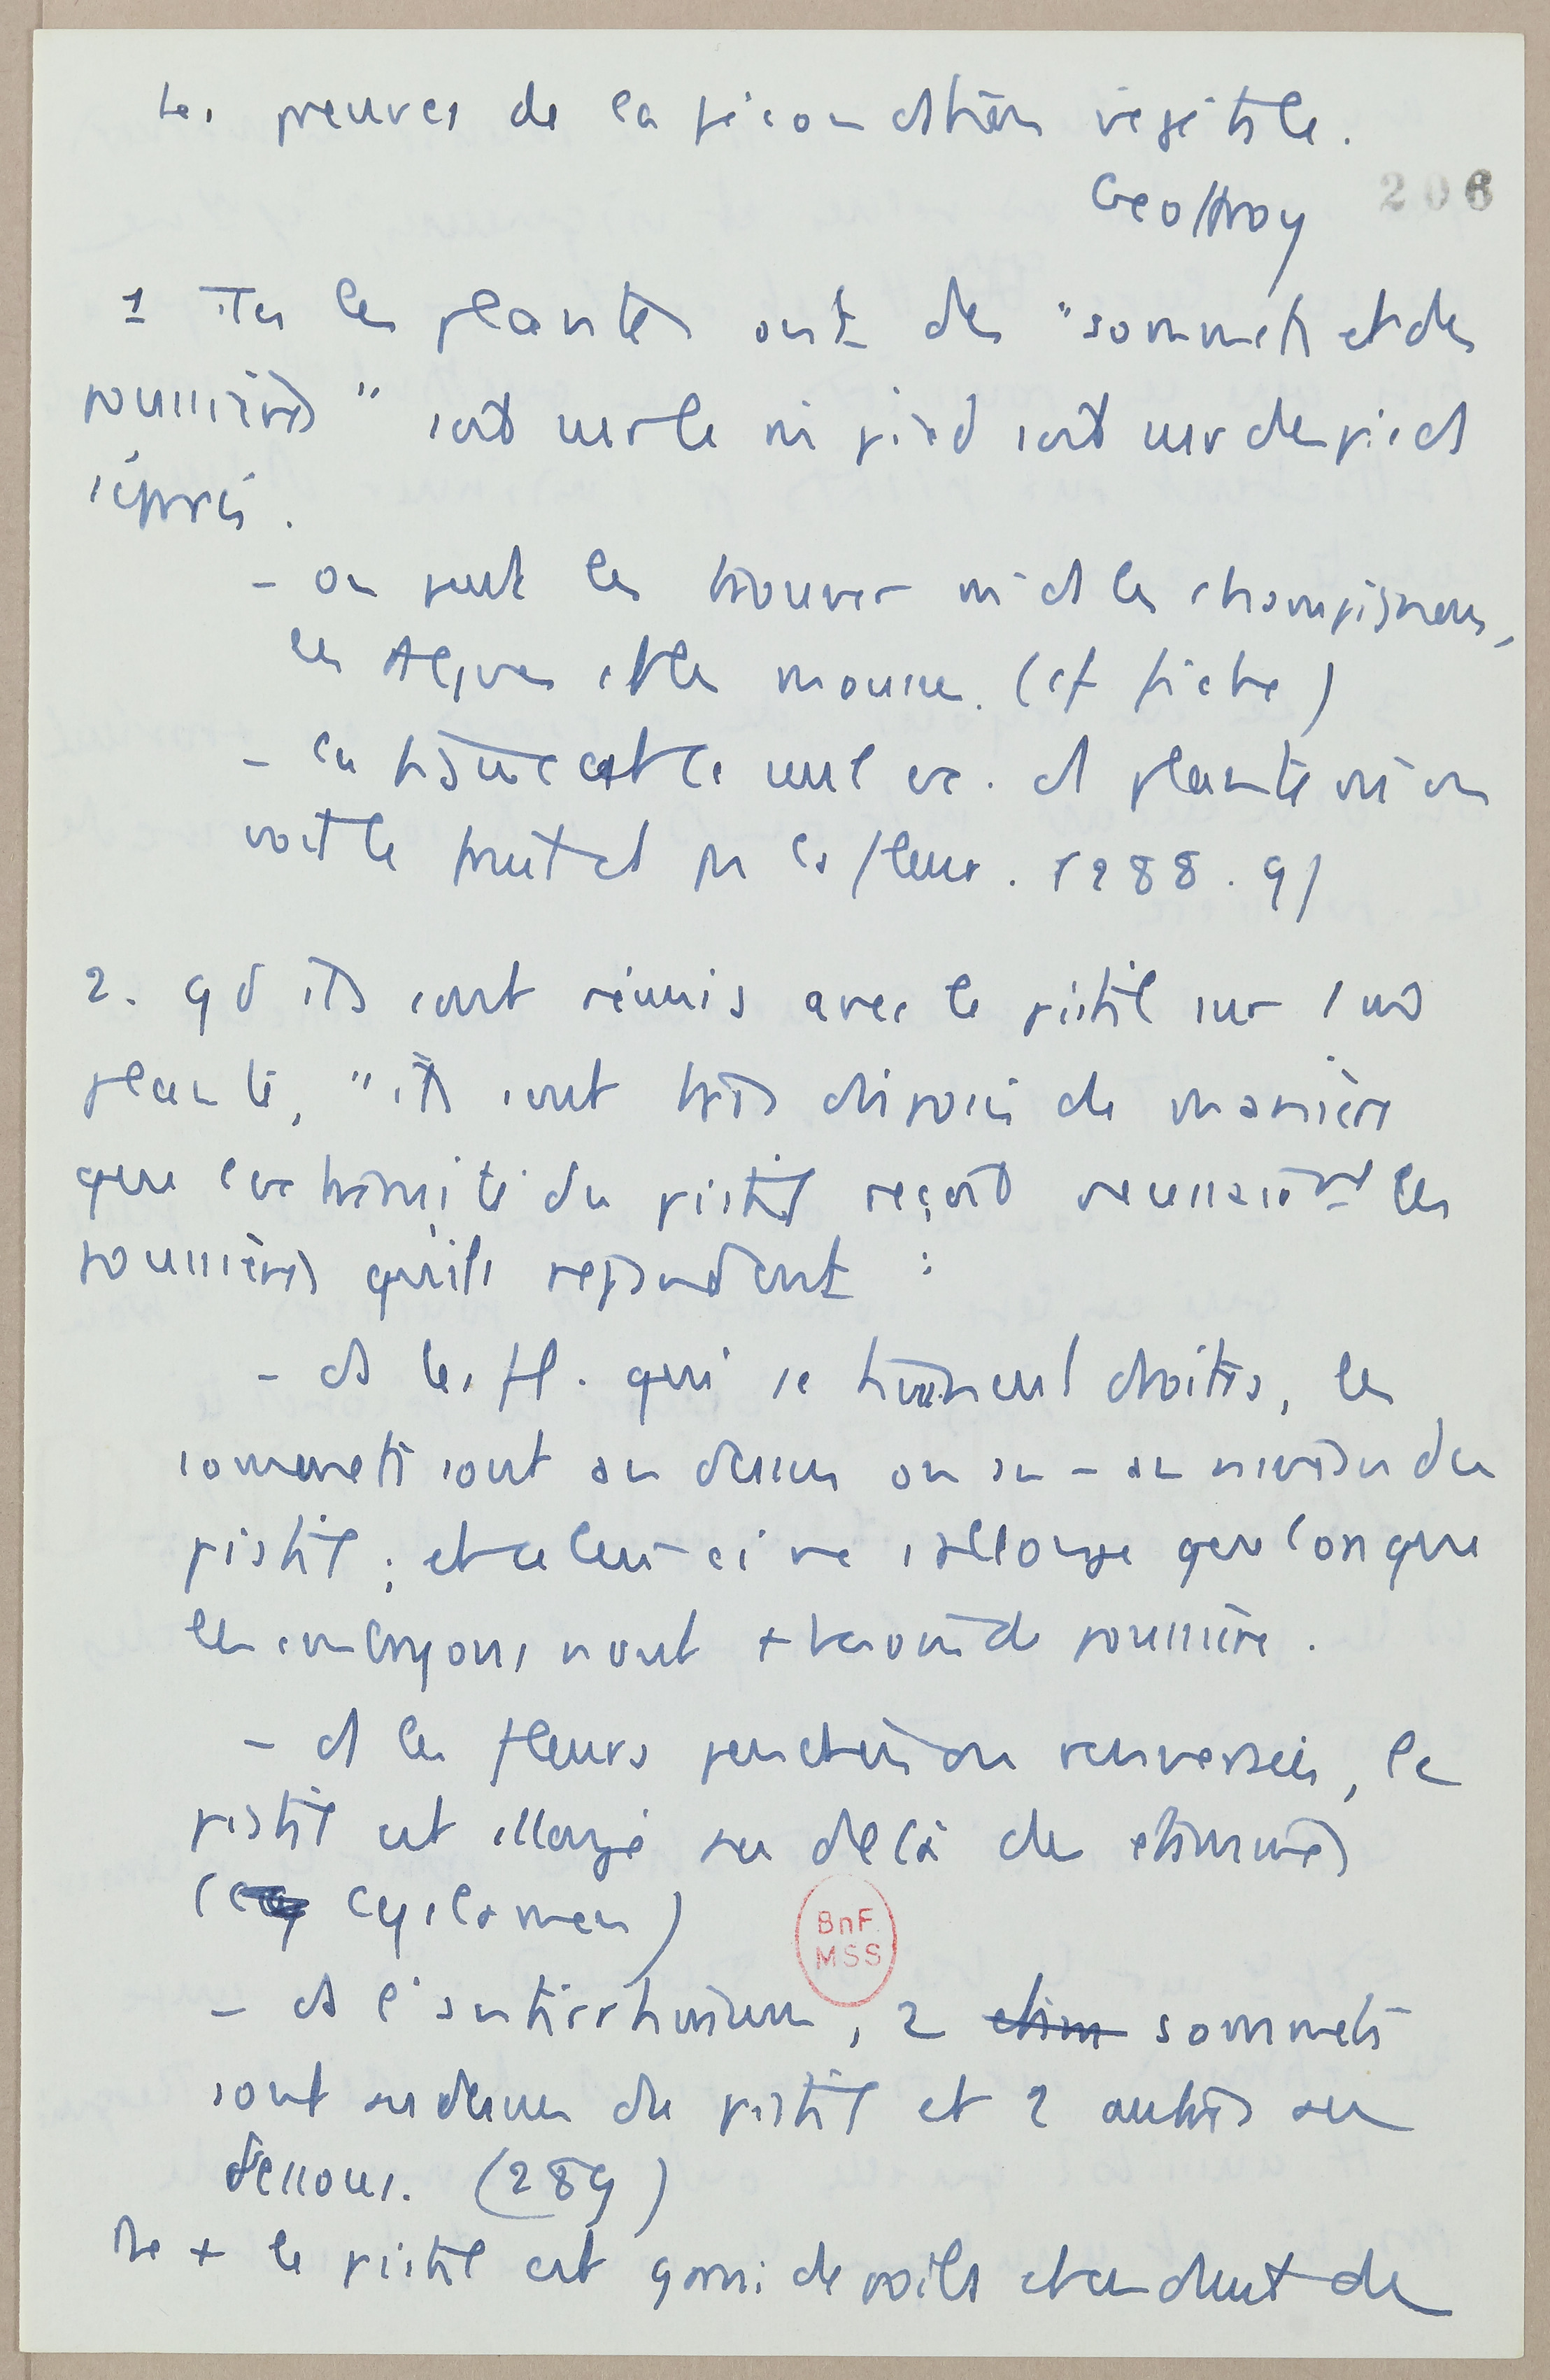 Les preuves de la fécondation végétale.
Geoffroy
206
1 Ttes les plantes ont des "sommets et des
poussières" soit sur le m pied soit sur des pieds
séparés.
- on peut les trouver m ds les champignons,
les algues et les mousses. (cf fiche)
- la figue est le seul ex. ds plante où on
voit le fruit et pas la fleur. (288.9)
2. qd ils sont réunis avec le pistil sur 1 m
plante, "ils sont tjs disposés de manière
que l'extrémité du pistil reçoit nécessairemt les
poussières qu'ils répandent :
- ds les fl. qui se tiennent droites, les
sommets sont au dessus ou au - au niveau du
pistil ; et celui-ci ne s'allonge que lorsque
les embryons n'ont + besoin de poussière.
- ds les fleurs penchées ou renversées, le
pistil est allongé au delà des étamines
( cyclamen)
BnF
MSS
- ds l'antirrhinum, 2 sommets
sont au dessus du pistil et 2 autres au
dessous. (289)
De + le pistil est garni de poils et enduit de